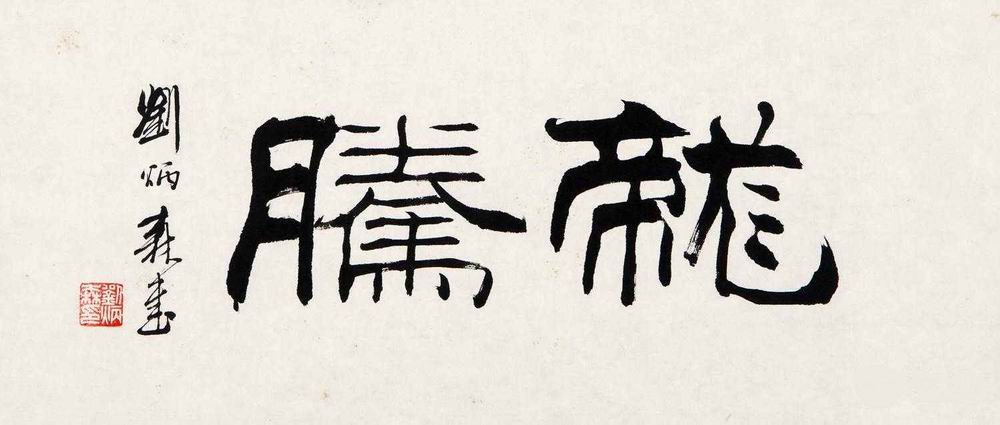 龍騰
劉炳森書
劉炳森印